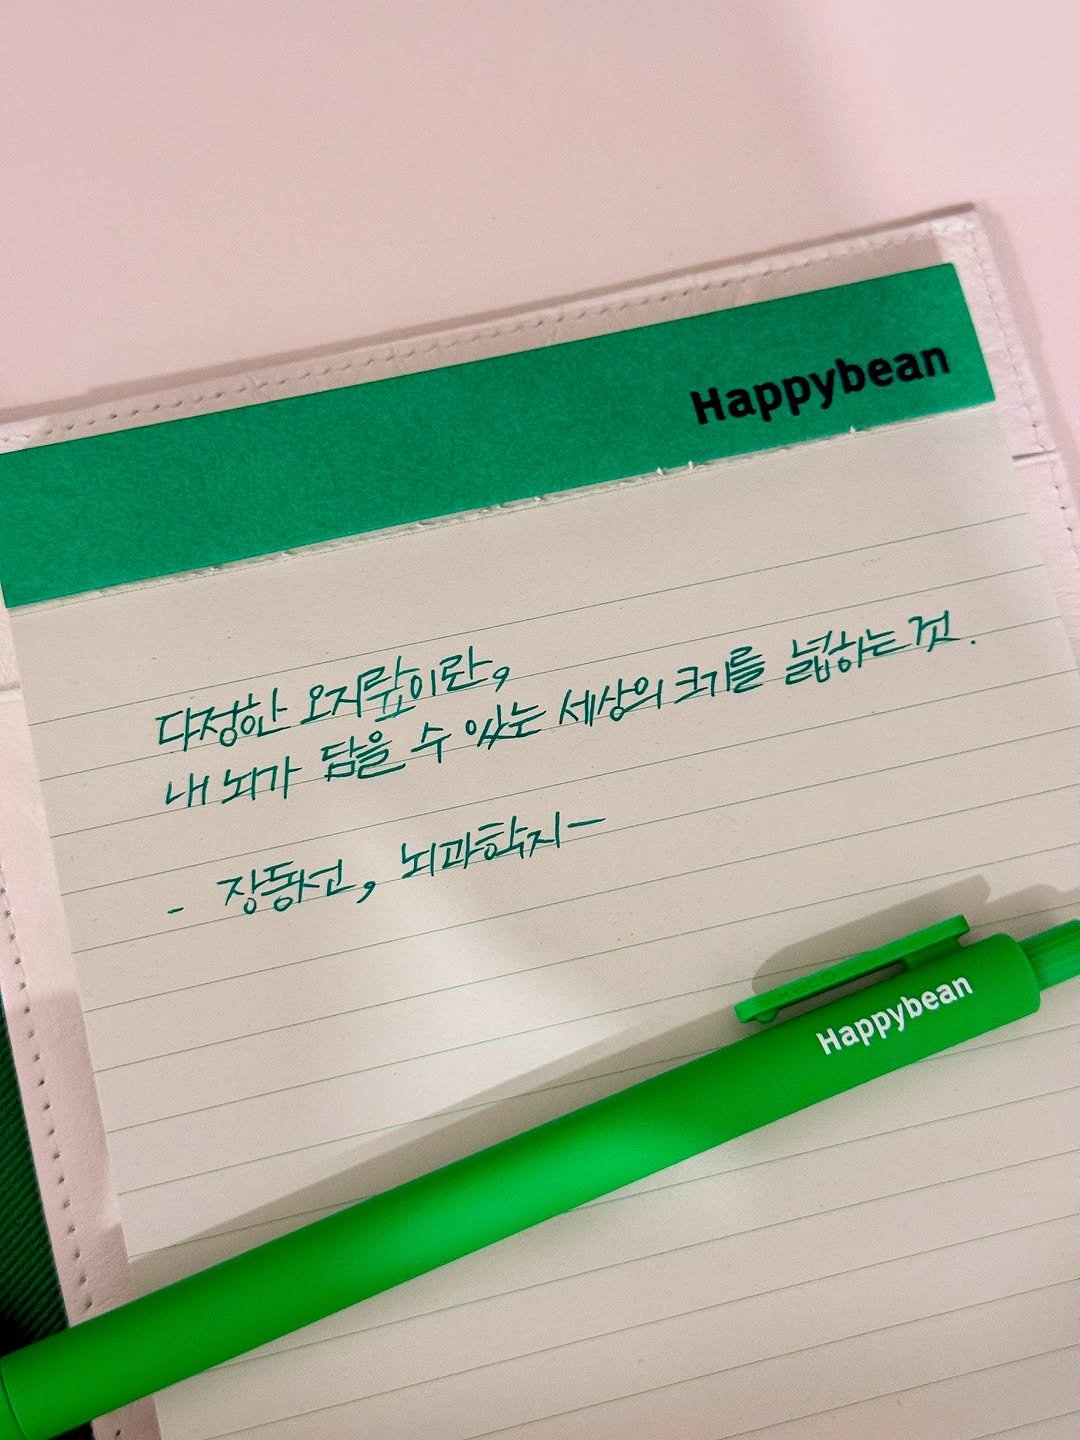 Happybean
다정한 오지랖이란,
내 뇌가 담을 수 있는 세상의 크기를 넓하는 것.
- 장동선, 뇌과학자ー
Happybean